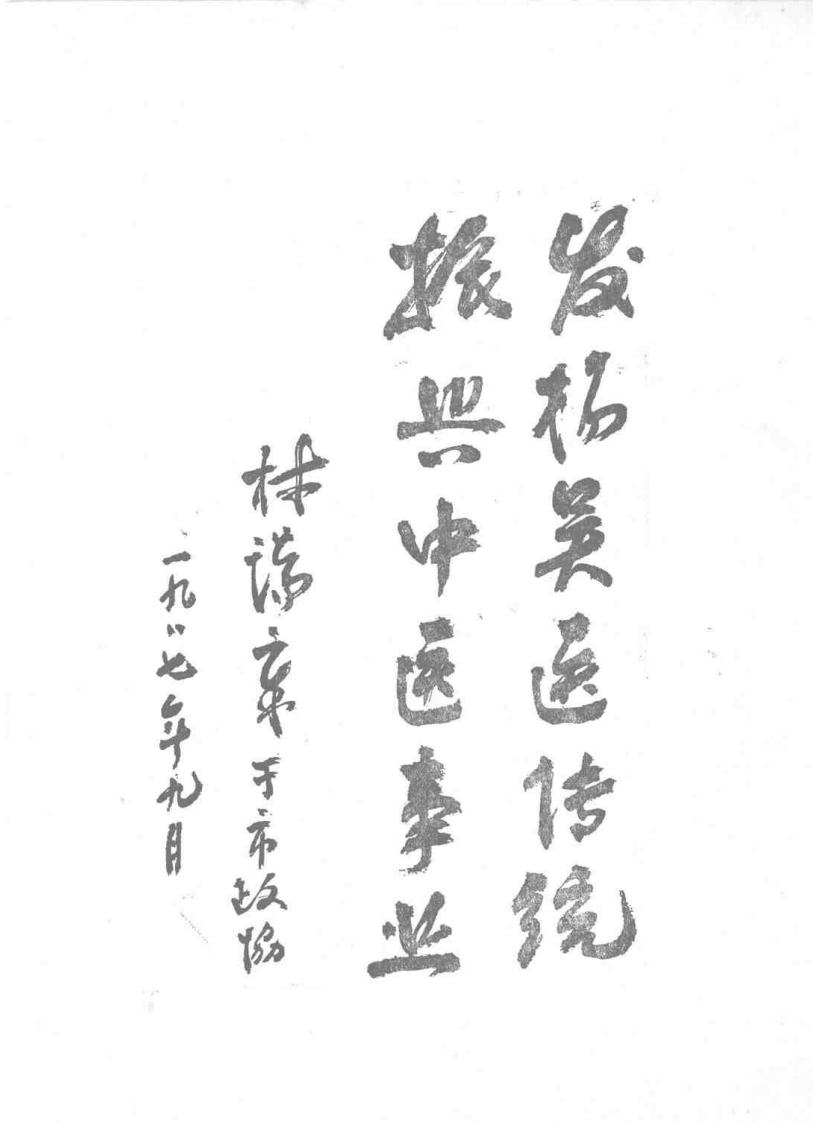 发扬吴医传统
振兴中医事业
林瑞章于市政协
一九八七年九月